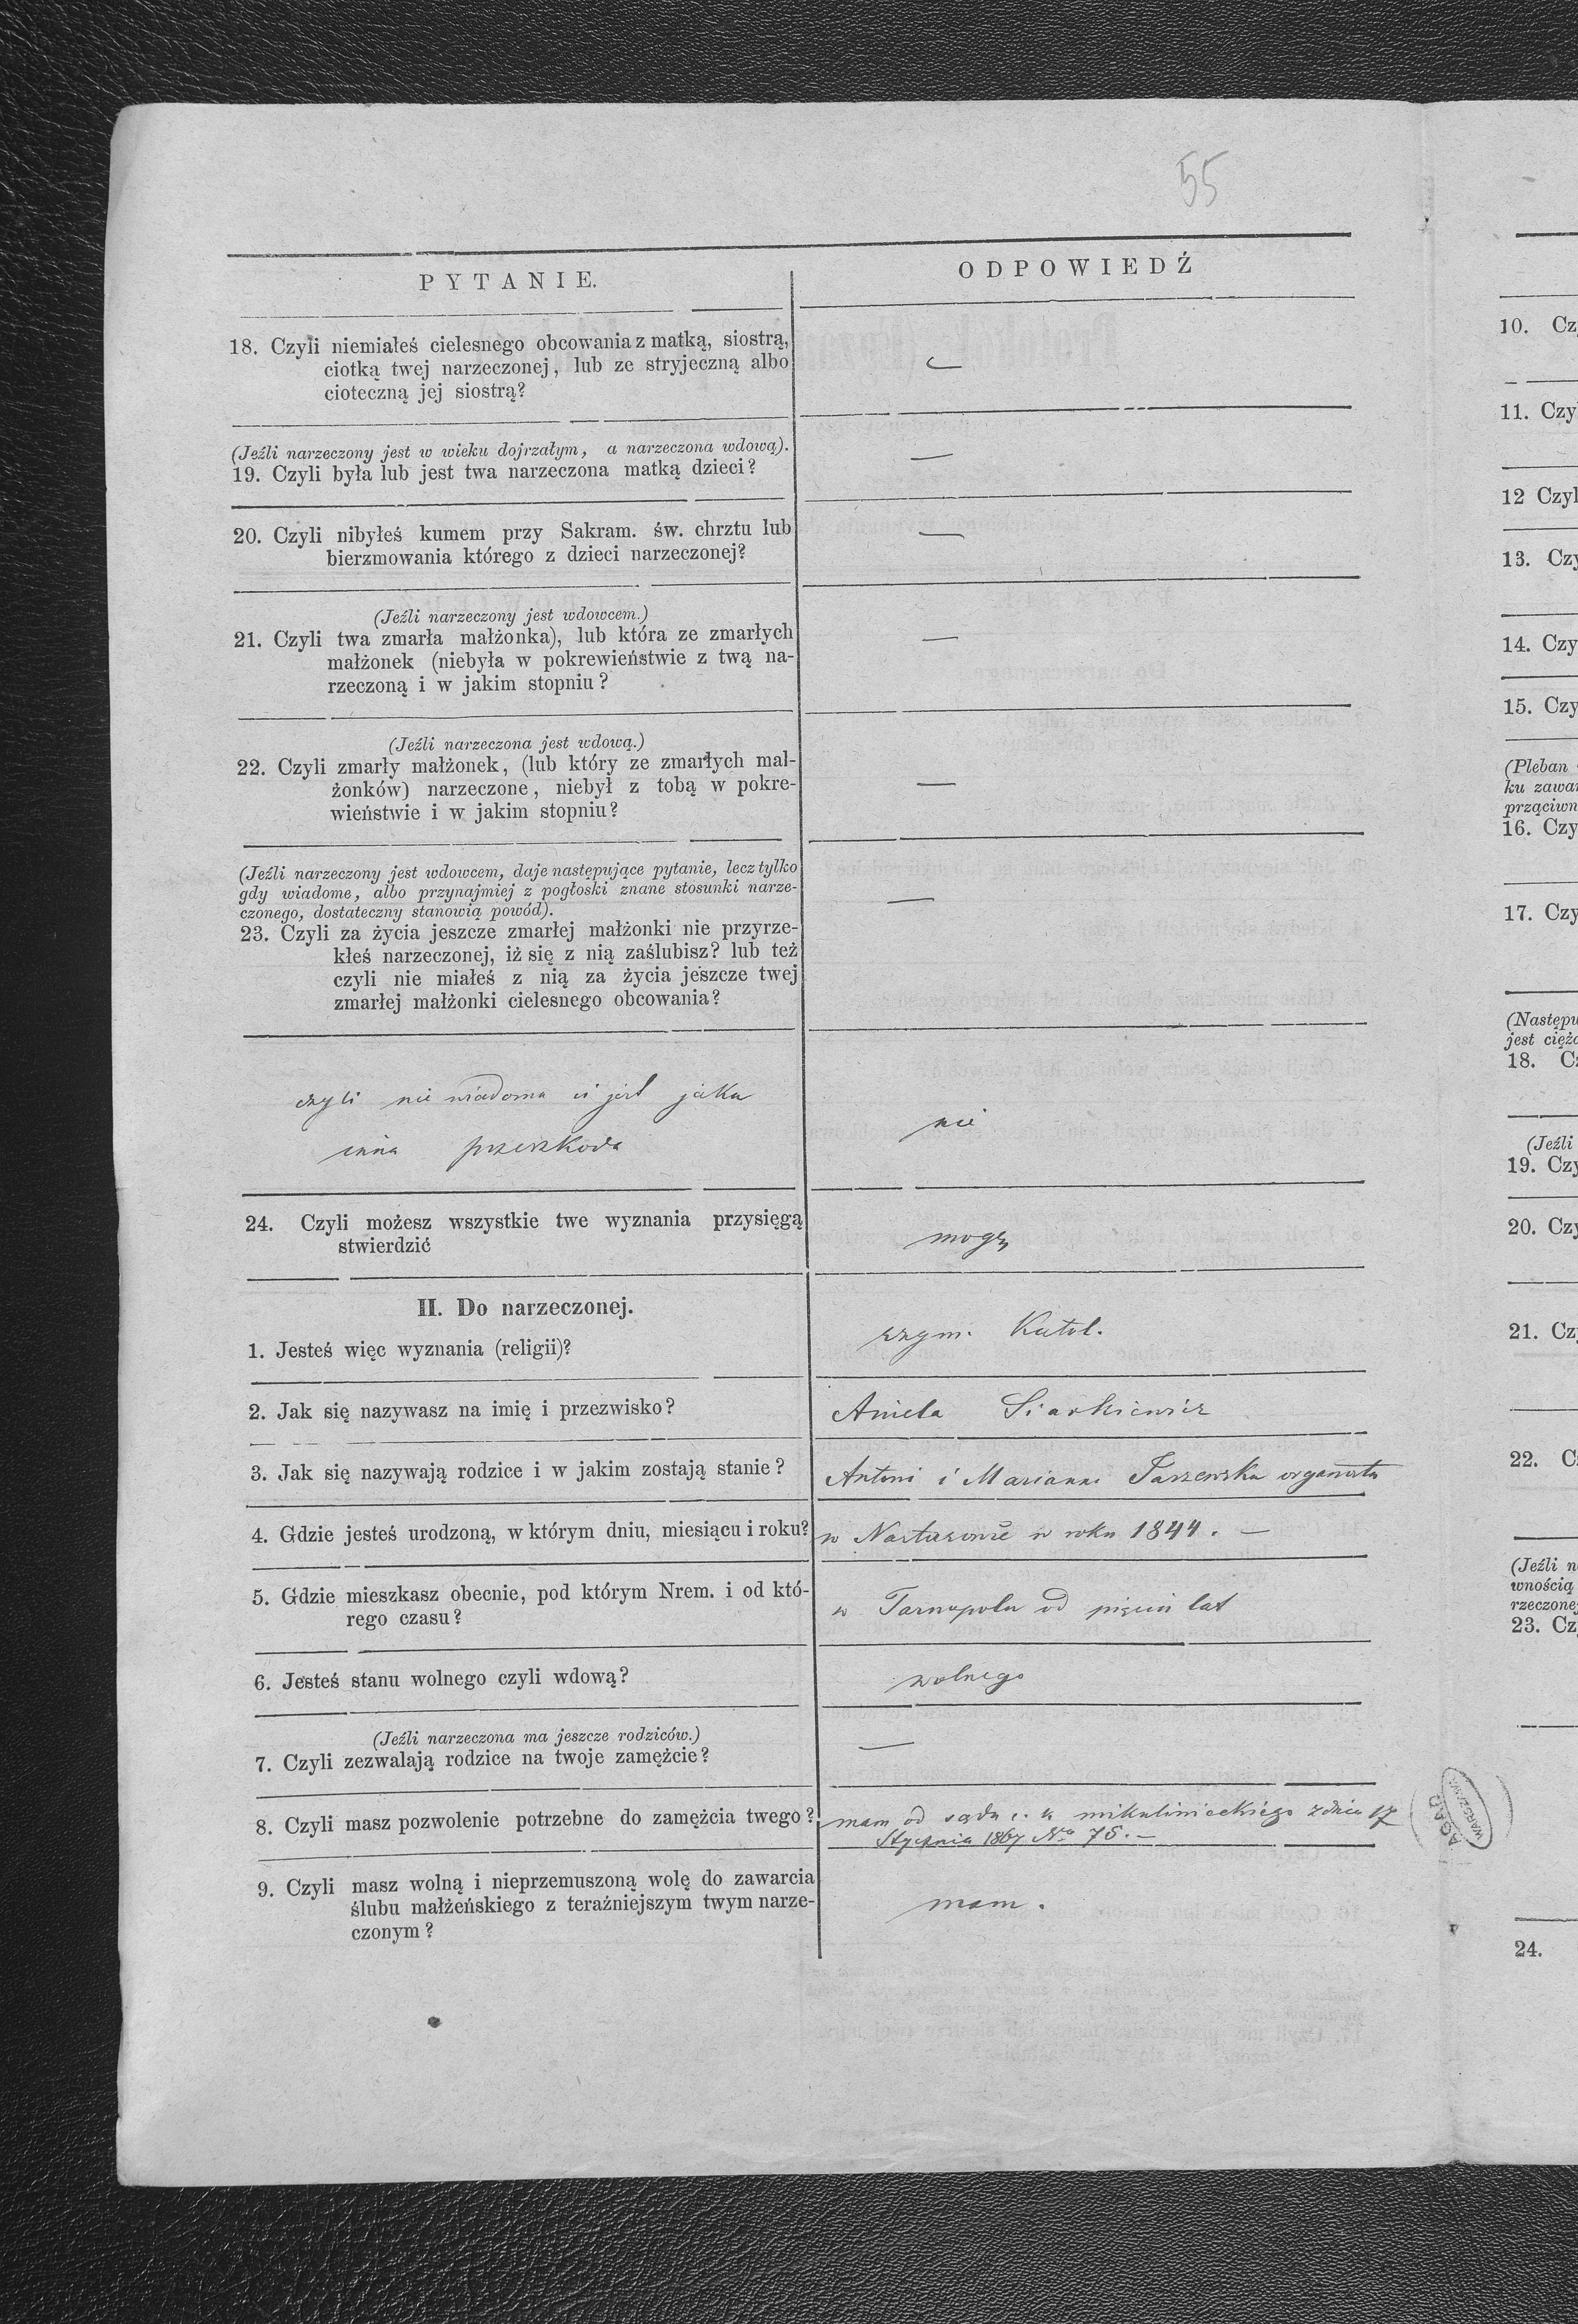 55
PYTANIE.
ODPOWIEDŹ
18. Czyli niemiałeś cielesnego obcowania z matką, siostrą,
ciotką twej narzeczonej, lub ze stryjeczną albo
cioteczną jej siostrą?
—
(Jeźli narzeczony jest w wieku dojrzałym, a narzeczona wdową).
19. Czyli była lub jest twa narzeczona matką dzieci?
—
20. Czyli nibyłeś kumem przy Sakram. św. chrztu lub
bierzmowania którego z dzieci narzeczonej?
—
(Jeźli narzeczony jest wdowcem.)
21. Czyli twa zmarła małżonka), lub która ze zmarłych
małżonek (niebyła w pokrewieństwie z twą na-
rzeczoną i w jakim stopniu?
—
(Jeźli narzeczona jest wdową.)
22. Czyli zmarły małżonek, (lub który ze zmarłych mał-
żonków) narzeczone, niebył z tobą w pokre-
wieństwie i w jakim stopniu?
—
(Jeźli narzeczony jest wdowcem, daje następujące pytanie, lecz tylko
gdy wiadome, albo przynajmiej z pogłoski znane stosunki narze-
czonego, dostateczny stanowią powód).
23. Czyli za życia jeszcze zmarłej małżonki nie przyrze-
kłeś narzeczonej, iż się z nią zaślubisz? lub też
czyli nie miałeś z nią za życia jeszcze twej
zmarłej małżonki cielesnego obcowania?
—
czyli nie wiadoma ci jest jaka
inna przeszkoda
nie
24. Czyli możesz wszystkie twe wyznania przysięgą
stwierdzić
mogę
II. Do narzeczonej.
1. Jesteś więc wyznania (religii)?
rzym. Katol.
2. Jak się nazywasz na imię i przezwisko?
Aniela Siarkiewicz
3. Jak się nazywają rodzice i w jakim zostają stanie?
Antoni i Marianna organista
4. Gdzie jesteś urodzoną, w którym dniu, miesiącu i roku?
w Nastasowie w roku 1844. —
5. Gdzie mieszkasz obecnie, pod którym Nrem. i od któ-
rego czasu?
w Tarnopolu od pięciu lat
6. Jesteś stanu wolnego czyli wdową?
wolnego
(Jeźli narzeczona ma jeszcze rodziców.)
7. Czyli zezwalają rodzice na twoje zamężcie?
—
8. Czyli masz pozwolenie potrzebne do zamężcia twego?
mam od sądu c. k mikulinieckiego z dnia 17
Stycznia 1867 No 75. —
9. Czyli masz wolną i nieprzemuszoną wolę do zawarcia
ślubu małżeńskiego z teraźniejszym twym narze-
czonym?
mam.
AGAD
WARSZAWA
10. Cz
11. Czy
12 Czyl
13. Czy
14. Czy
15. Czy
(Pleban
ku zawar
prząciwn
16. Czy
17. Czy
(Następu
jest cięż
18. Cz
(Jeźli
19. Czy
20. Czy
21. Cz
22. C
(Jeźli n
wnością
rzeczone
23. Cz
24.